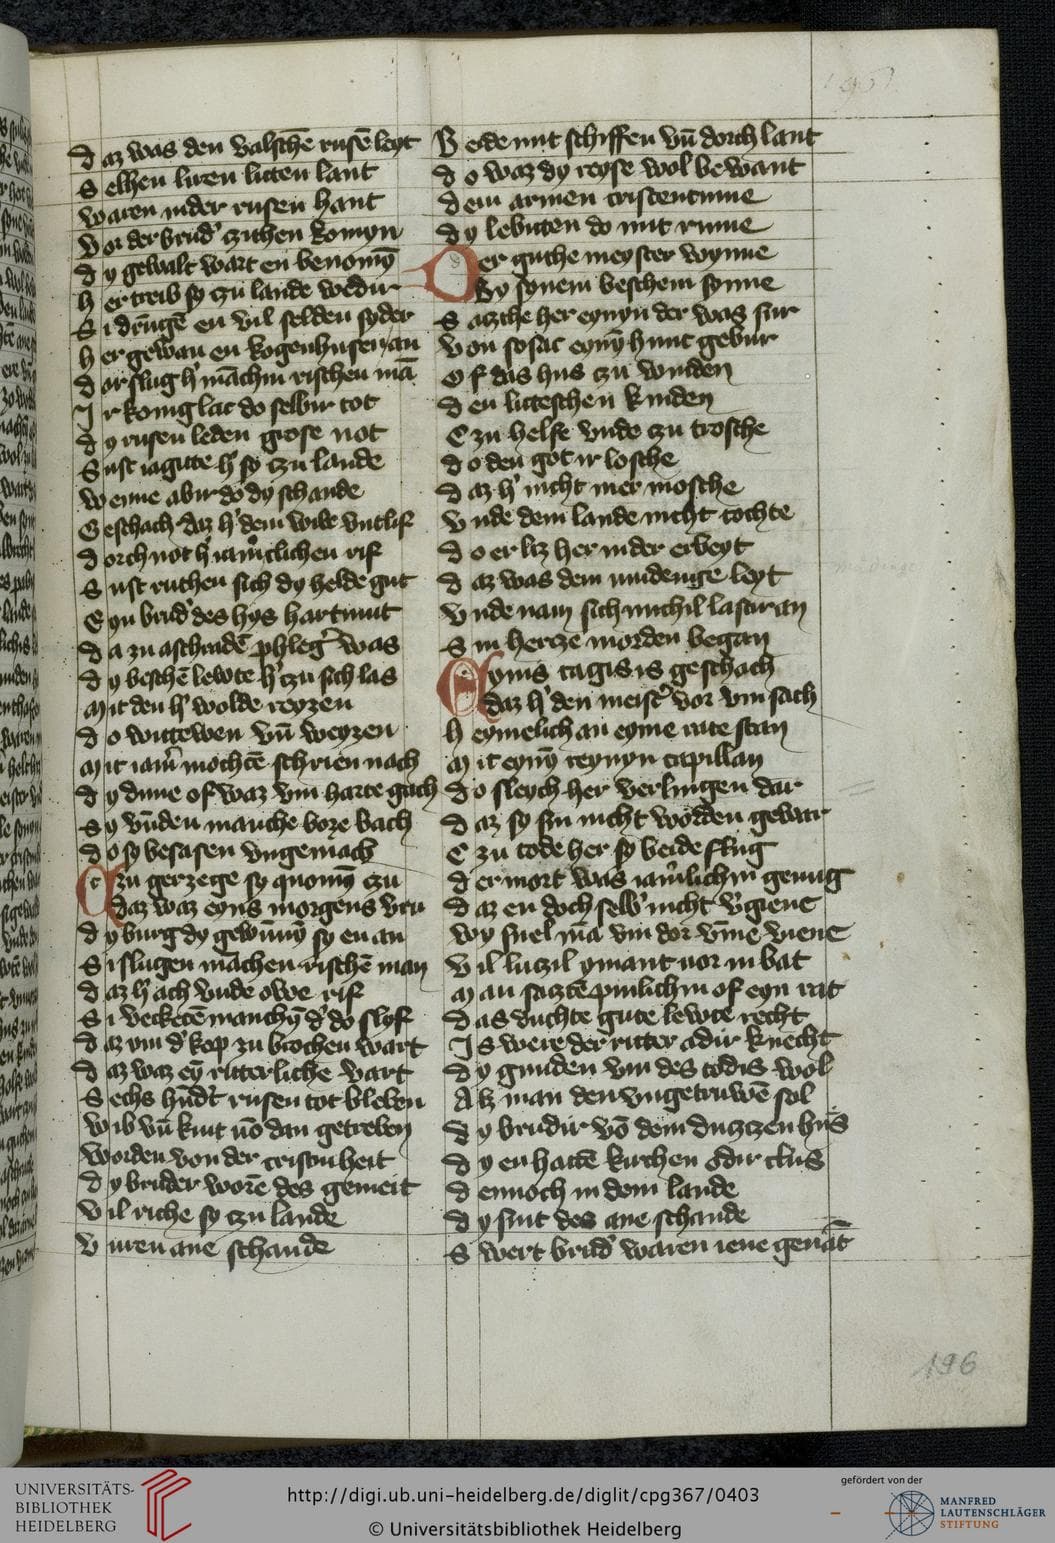 daz was den valschē rusē leyt
Selhen liren litten lant
waren in der rusen hant
vor der brud' czithen komyn
dy gewalt wart en benomȳ
her treib sy czu lande wedir
Si drūgē en vil selden syder
her gewan en kogenhusen an
dar slug h' māchin rischen mā
Ir konig lac do selbir tot
dy rusen leden grose not
Sust iagute h' sy czu lande
wenne abir do dy schande
Geschach daz h' dem wibe vntlif
dorch not h' iam'clichen rif
Sust ruthen sich dy helde gut
Eyn brud' des hys hartmut
da zu aschradē phleg' was
dy beschē lewte h' czu sich las
mit den h' wolde reyzen
do wittewen vn̄ weyzen
mit iam' mochtē schrien nach
dy dinne of waz vm harte gach
Sy vūden manche boze bach
do sy besasen vngemach
Czu gerzege sy quomȳ czu
daz waz eyns morgens vru
dy burg dy gewūnȳ sy en an
Si slugen māchen rischē man
daz h' ach vnde owe rif
Si wecketē manchȳ d' do slyf
daz ym d' kop zu brochen wart
daz waz eȳ ritterliche vart
Sechs hūd't rusen tot bleben
wib vn̄ kint vō dan getreben
worden von der cristinheit
dy bruder worē des gemeit
vil riche sy czu lande
vuren ane schande
Beide mit schiffen vn̄ dorch lant
do waz dy reyse wol bewant
dem armen cristentume
dy lebuten do mit rume
Der guthe meyster wynne
By synem beschem synne
Saczthe her eynyn der was sur
von sosat eynȳ hunt gebur
of das hus czu winden
den litteschen kinden
Czu helfe vnde czu trosche
do den got ir losche
daz h' nicht mer mosche
vnde dem lande nicht tochte
do er liz her in der erbeyt
daz was dem nudenge leyt
vnde nam sich michil lastir an
Sin hertze morden began
Eynis tagis is geschach
daz h' den meist' vor ym sach
heymelich an eyme rate stan
mit eynȳ reynyn capillan
do sleych her verlingen dar
daz sy sin nicht wordden gewar
Czu tode her sy beide slug
der mort was iam'lichin genug
daz en doch selb' nicht v'gienc
wy snel mā ym dor vm̄e vienc
vil luczil ymant vor in bat
man sacztē pinlichin of eyn rat
das duchte gute lewte recht
Is were der ritter adir knecht
dy gunden ym des todis wol
Alz man den vngetruwē sol
dy brudir vō dem duczczen hus
dy en hattē kirchen odir clus
dennoch in dem lande
dy sint des ane schande
Swert brud' waren iene genāt
196
UNIVERSITÄTS-
BIBLIOTHEK
HEIDELBERG
http://digi.ub.uni-heidelberg.de/diglit/cpg367/0403
© Universitätsbibliothek Heidelberg
gefördert von der
MANFRED
LAUTENSCHLÄGER
STIFTUNG